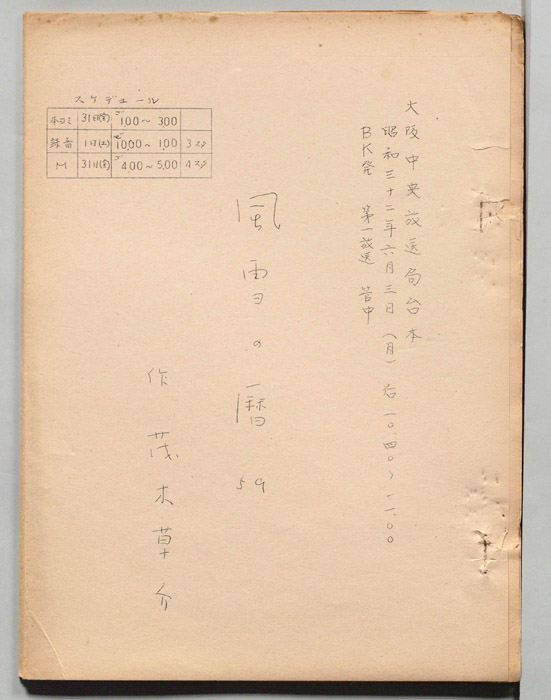 大阪中央放送局台本
昭和三十二年六月三日(月) 后一〇.四〇〜一一.〇〇
BK発 第一放送 管中
スケデュール
本ヨミ 31日(金) ゴ 1.00〜3.00
録音 1日(土) ゼ 10.00〜1.00 3スタ
M 31日(金) ゴ 4.00〜5.00 4スタ
風雪の暦 59
作 茂木草介